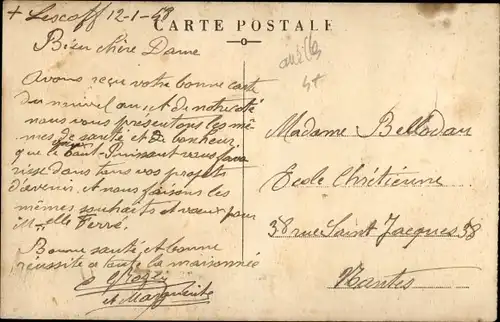 + Lescoff 12-1-48
CARTE POSTALE
Bien chère Dame
Avons reçu votre bonne carte
du nouvel an et de notre côté
nous vous présentons les mê-
mes de santé et de bonheur
que le Tout-Puissant vous favo
risse dans tous vos projets
d'avenir. et nous faisons les
mêmes souhaits et vœux pour
Melle Ferré.
Bonne santé et bonne
réussite a toute la maisonnée
et Marguerite
Madame Bellodau
Ecole Chrétienne
38 rue Saint Jacques 38
Nantes